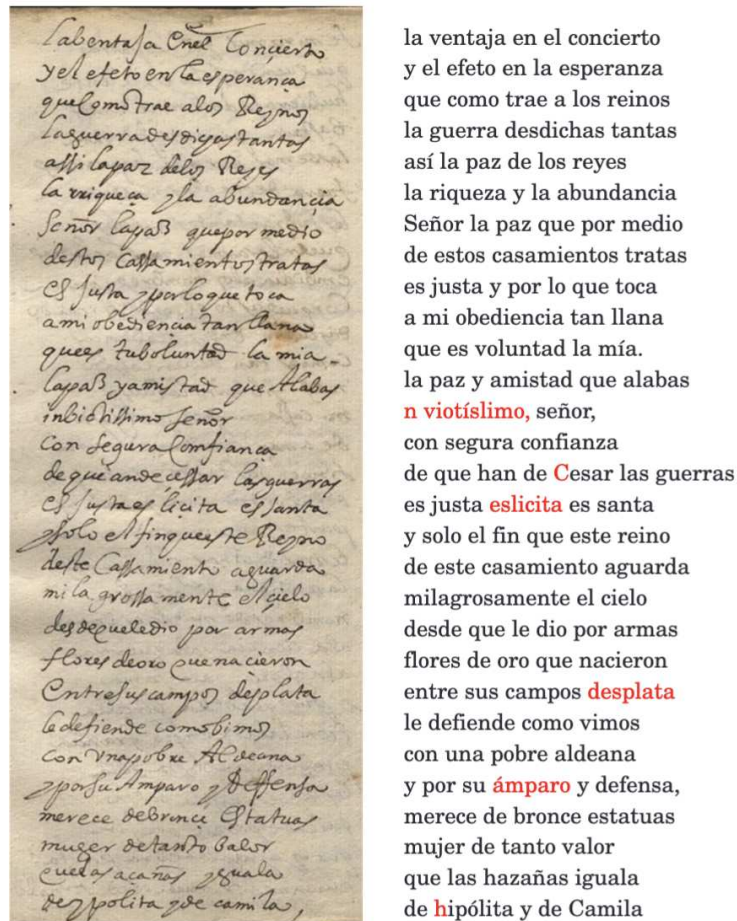 labentaja Enel Concierto
y el efeto en la esperança
que Como trae a los Reynos
la guerra desdichas tantas
assi la paz delos Reyes
la rriqueça y la abundancia
Señor la paz que por medio
destos Cassamientos tratas
es justa y por lo que toca
a mi obediencia tan llana
que es tu boluntad la mia
la paz y amistad que Alabas
inbictissimo señor
con segura Comfiança
de que an de cessar las guerras
es justa es licita es santa
y solo el fin que este Reyno
deste Cassamiento aguarda
milagrossamente el cielo
desde que le dio por armas
flores de oro que nacieron
Entre sus campos de plata
le defiende como bimos
con Una pobre Aldeana
y por su Amparo y Deffensa
merece de bronce Estatuas
muger de tanto balor
que las açañas yguala
de ypolita y de camila,
la ventaja en el concierto
y el efeto en la esperanza
que como trae a los reinos
la guerra desdichas tantas
así la paz de los reyes
la riqueza y la abundancia
Señor la paz que por medio
de estos casamientos tratas
es justa y por lo que toca
a mi obediencia tan llana
que es voluntad la mía.
la paz y amistad que alabas
n viotíslimo, señor,
con segura confianza
de que han de Cesar las guerras
es justa eslicita es santa
y solo el fin que este reino
de este casamiento aguarda
milagrosamente el cielo
desde que le dio por armas
flores de oro que nacieron
entre sus campos desplata
le defiende como vimos
con una pobre aldeana
y por su ámparo y defensa,
merece de bronce estatuas
mujer de tanto valor
que las hazañas iguala
de hipólita y de Camila